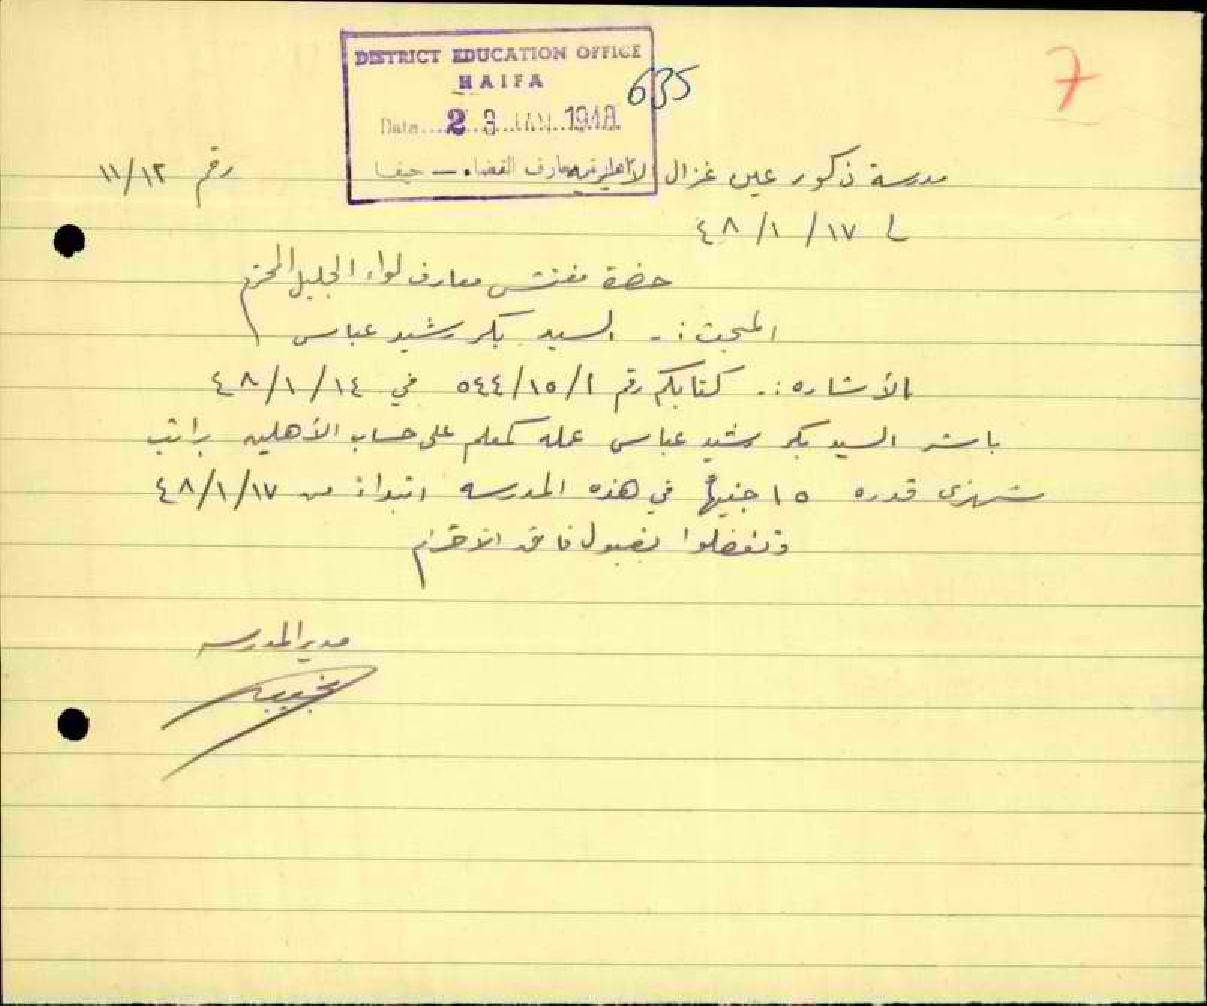 DISTRICT EDUCATION OFFICE
HAIFA
635
7
Date....2 3 JAN 1948
معارف القضاء — حيفا
مدرسة ذكور عين غزال الاميرية
رقم ١١/١٢
٤٨/١/١٧
حضرة مفتش معارف لواء الجليل المحترم
المبحث :- السيد بكر رشيد عباس
الأشاره :- كتابكم رقم ٥٤٤/١٥/١ في ٤٨/١/١٤
باشر السيد بكر رشيد عباس عمله كمعلم على حساب الأهلين براتب
شهري قدره ١٥ جنيهاً في هذه المدرسه ابتداءً من ٤٨/١/١٧
وتفضلوا بقبول فائق الاحترام
مدير المدرسه